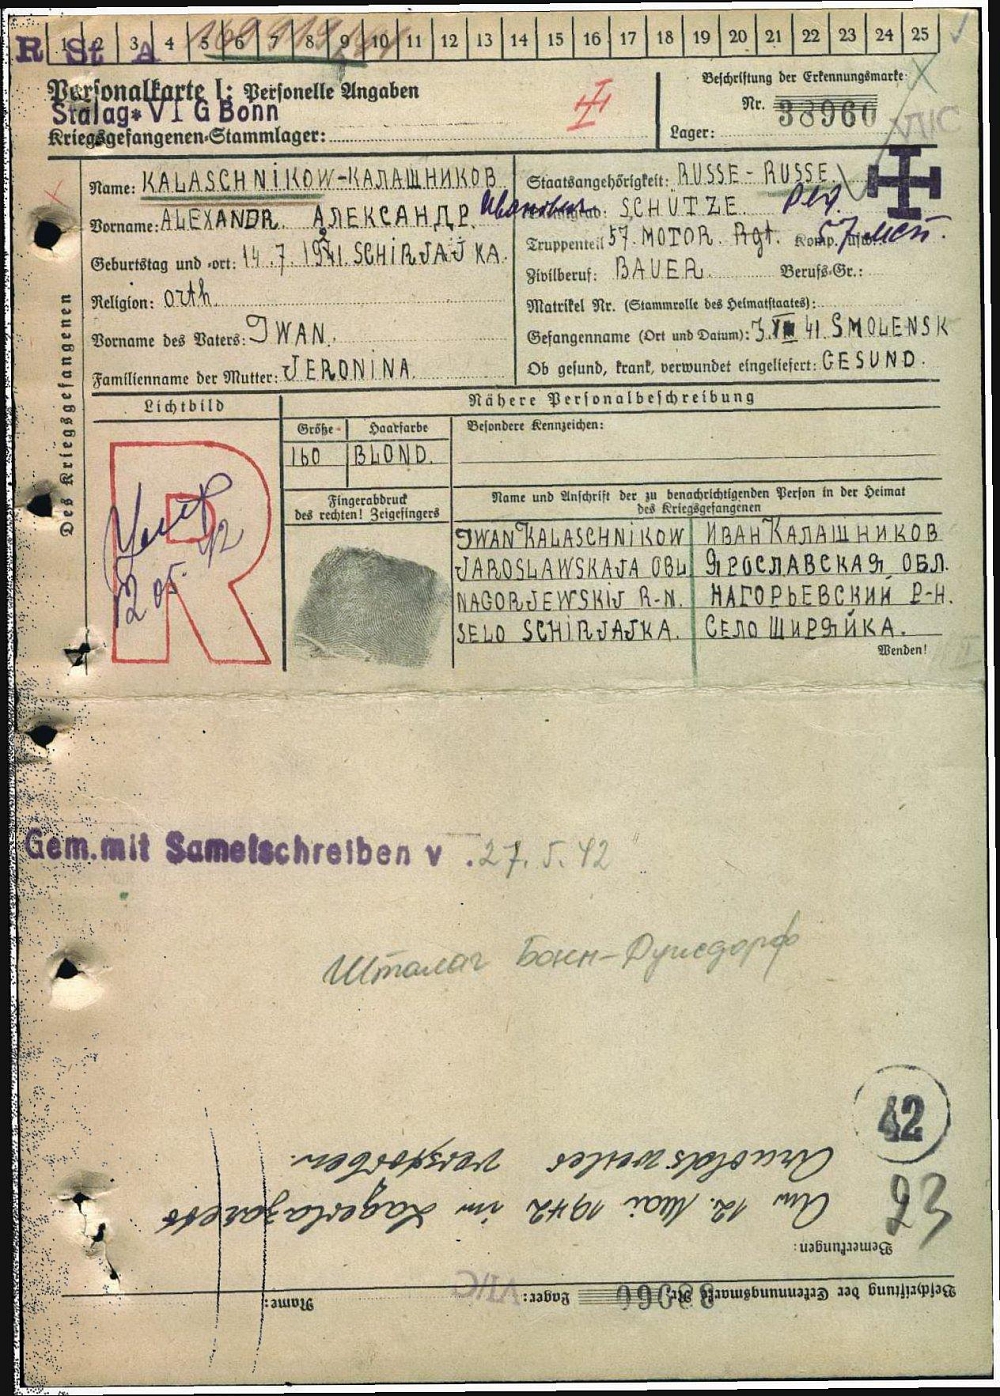 1 2 3 4 5 6 7 8 9 10 11 12 13 14 15 16 17 18 19 20 21 22 23 24 25
R St A
Personalkarte I: Personelle Angaben
Stalag VI G Bonn
Kriegsgefangenen-Stammlager:
Beschriftung der Erkennungsmarke:
Nr. 38960
Lager: VI/C
Des Kriegsgefangenen
Name: KALASCHNIKOW-КАЛАШНИКОВ
Vorname: ALEXANDR. АЛЕКСАНДР. Иванович
Geburtstag und -ort: 14.7.1921. SCHIRJAJKA.
Religion: orth.
Vorname des Vaters: IWAN.
Familienname der Mutter: JERONINA.
Staatsangehörigkeit: RUSSE - RUSSE.
Dienstgrad: SCHUTZE.
Truppenteil 57. MOTOR. Rgt. Komp. usw.: 57 мсп.
Zivilberuf: BAUER. Berufs-Gr.:
Matrikel Nr. (Stammrolle des Heimatstaates):
Gefangennahme (Ort und Datum): 41. SMOLENSK
Ob gesund, krank, verwundet eingeliefert: GESUND.
Lichtbild
Nähere Personalbeschreibung
Größe Haarfarbe
160 BLOND.
Besondere Kennzeichen:
Fingerabdruck
des rechten! Zeigefingers
Name und Anschrift der zu benachrichtigenden Person in der Heimat
des Kriegsgefangenen
IWAN KALASCHNIKOW ИВАН КАЛАШНИКОВ
JAROSLAWSKAJA OBL ЯРОСЛАВСКАЯ ОБЛ.
NAGORJEWSKIJ R-N. НАГОРЬЕВСКИЙ Р-Н.
SELO SCHIRJAJKA. СЕЛО ШИРЯЙКА.
Wenden!
R
Gem. mit Samelschreiben v. 27.5.42
Шталаг Бонн-Дуисдорф
42
93
Beschriftung der Erkennungsmarke Nr. 38960 Lager: VI/C Name:
Bemerkungen:
Am 12. Mai 1942 im Lagerlazarett
Arnoldsweiler verstorben.